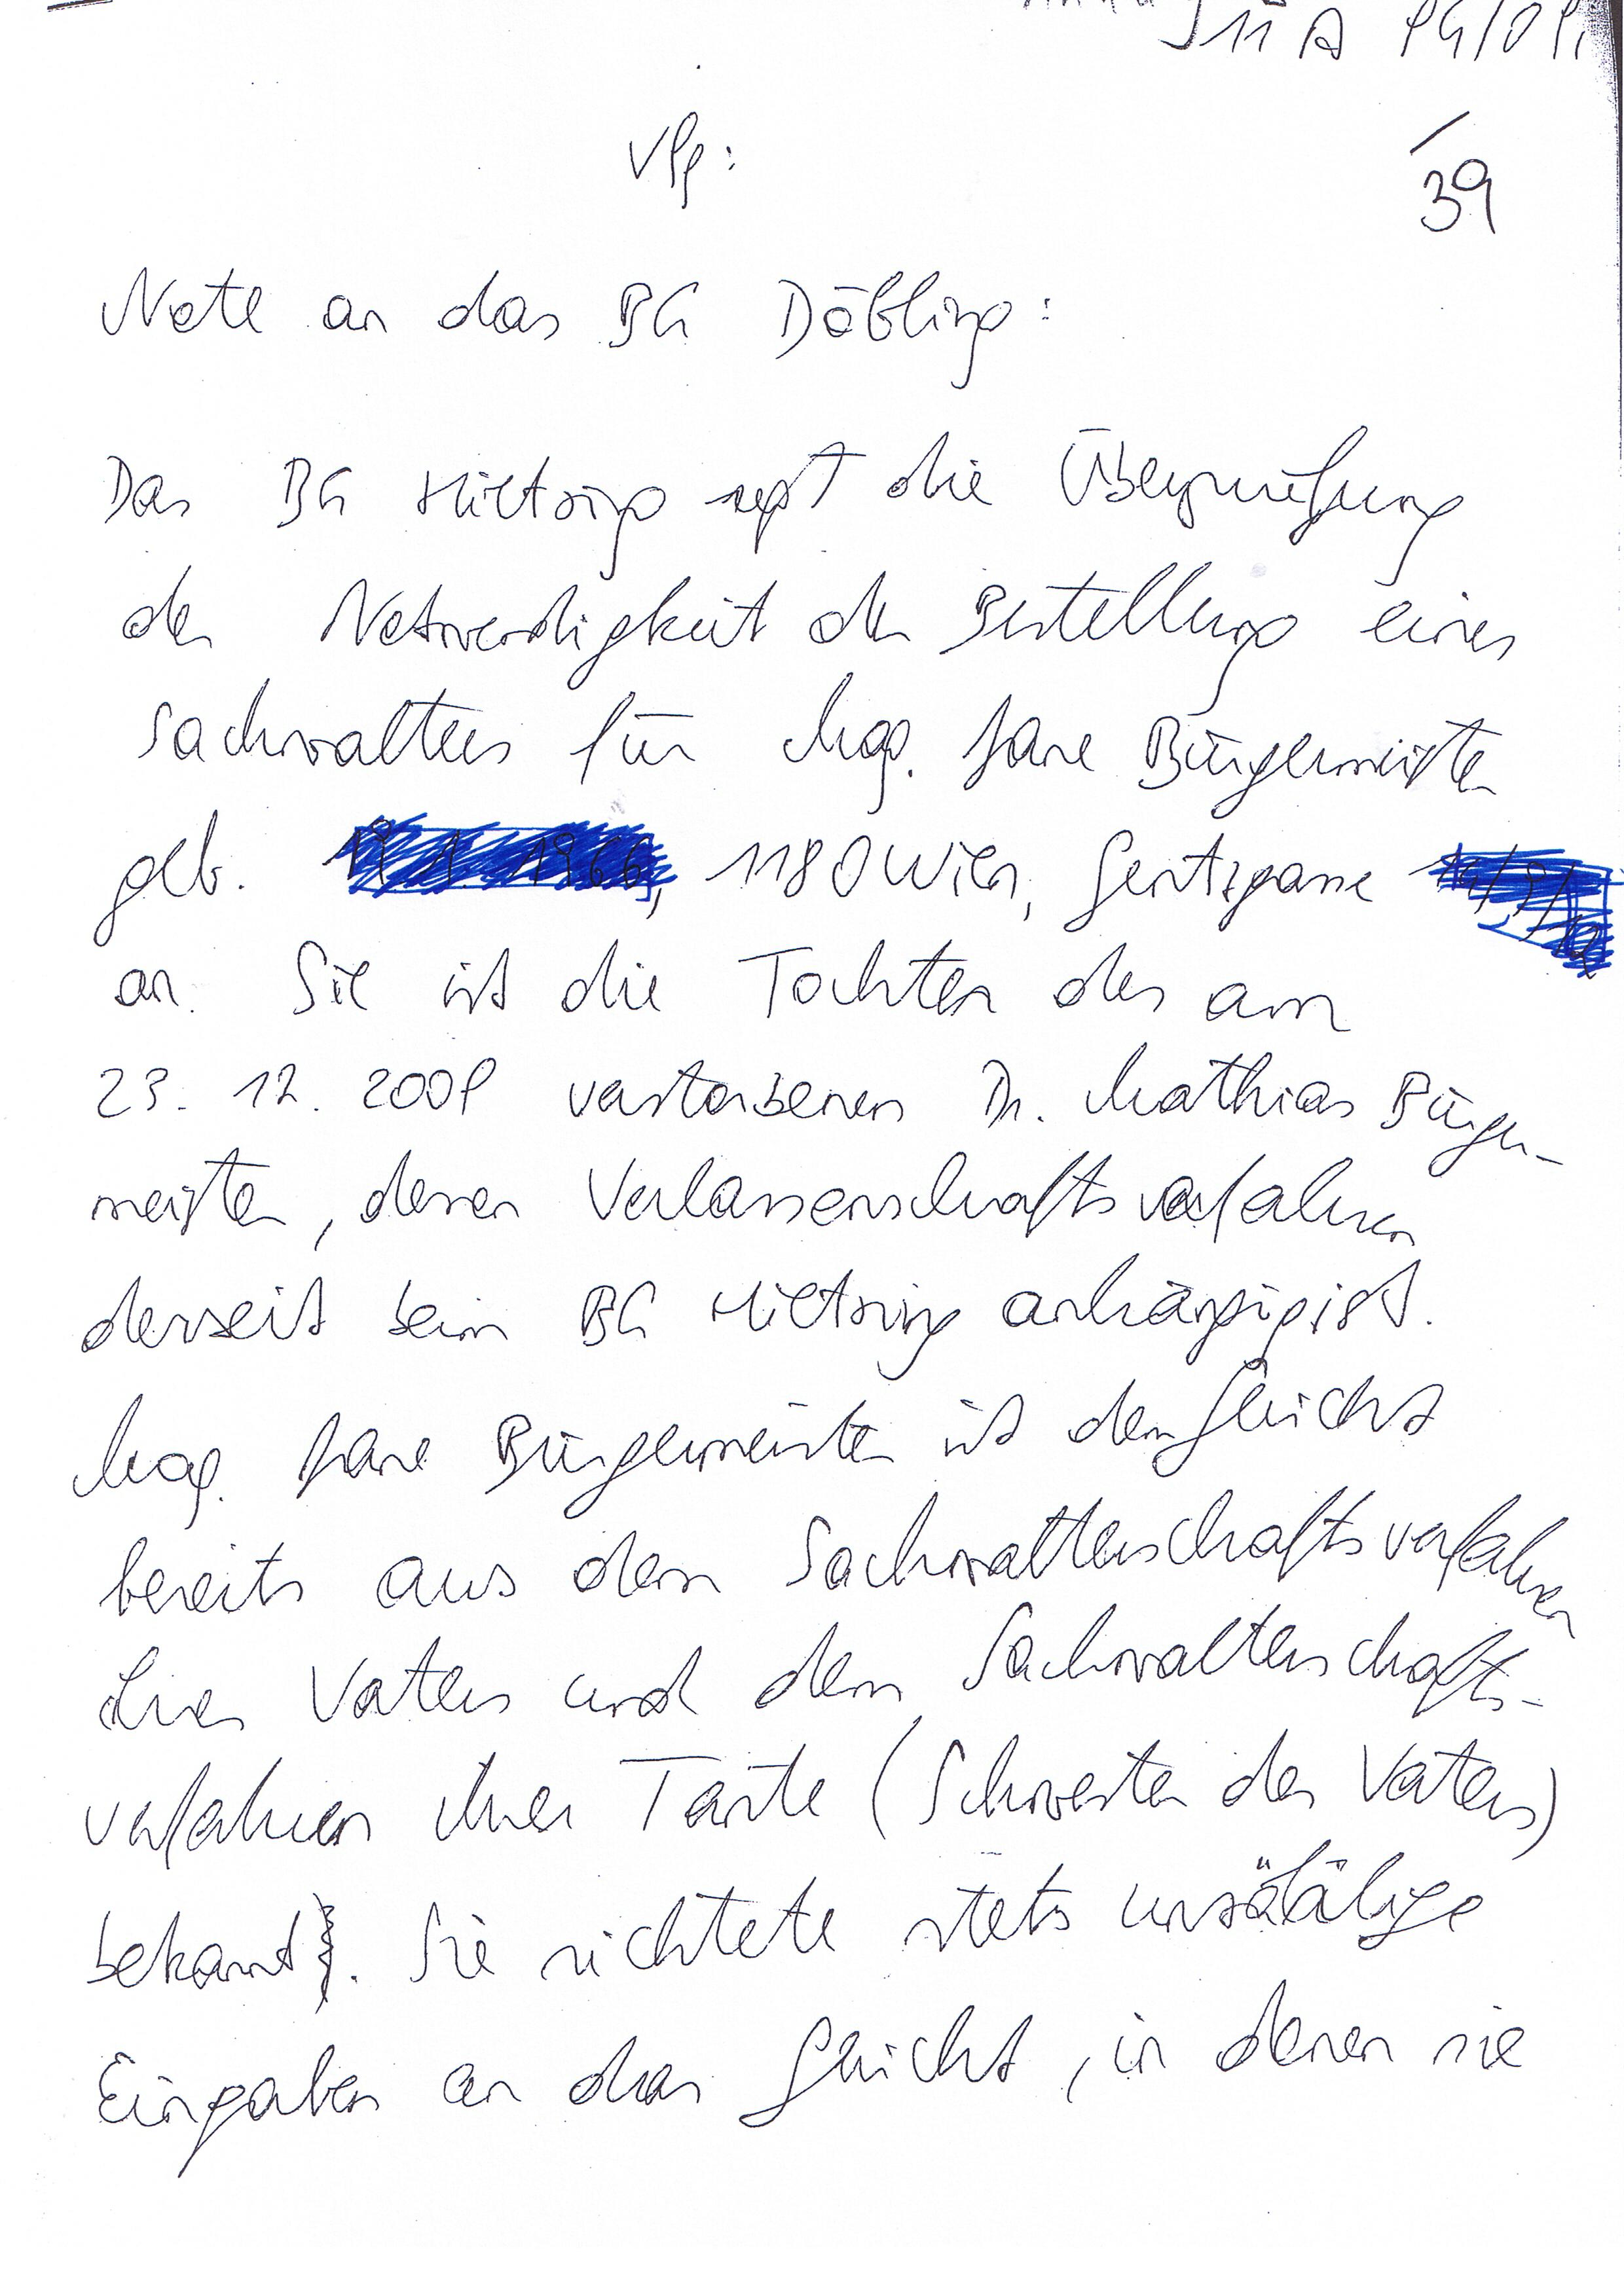 11 A
Vfg:
39
Note an das BG Döbling:
Das BG Hietzing regt die Überprüfung
der Notwendigkeit der Bestellung eines
Sachwalters für Mag. Jane Bürgermeister
geb. 1180 Wien, Gentzgasse
an. Sie ist die Tochter des am
23. 12. 2009 verstorbenen Dr. Mathias Bürger-
meister, dessen Verlassenschaftsverfahren
derzeit beim BG Hietzing anhängig ist.
Mag. Jane Bürgermeister ist dem Gericht
bereits aus dem Sachwalterschaftsverfahren
ihres Vaters und dem Sachwalterschafts-
verfahren ihrer Tante (Schwester des Vaters)
bekannt. Sie richtete stets unzählige
Eingaben an das Gericht, in denen sie